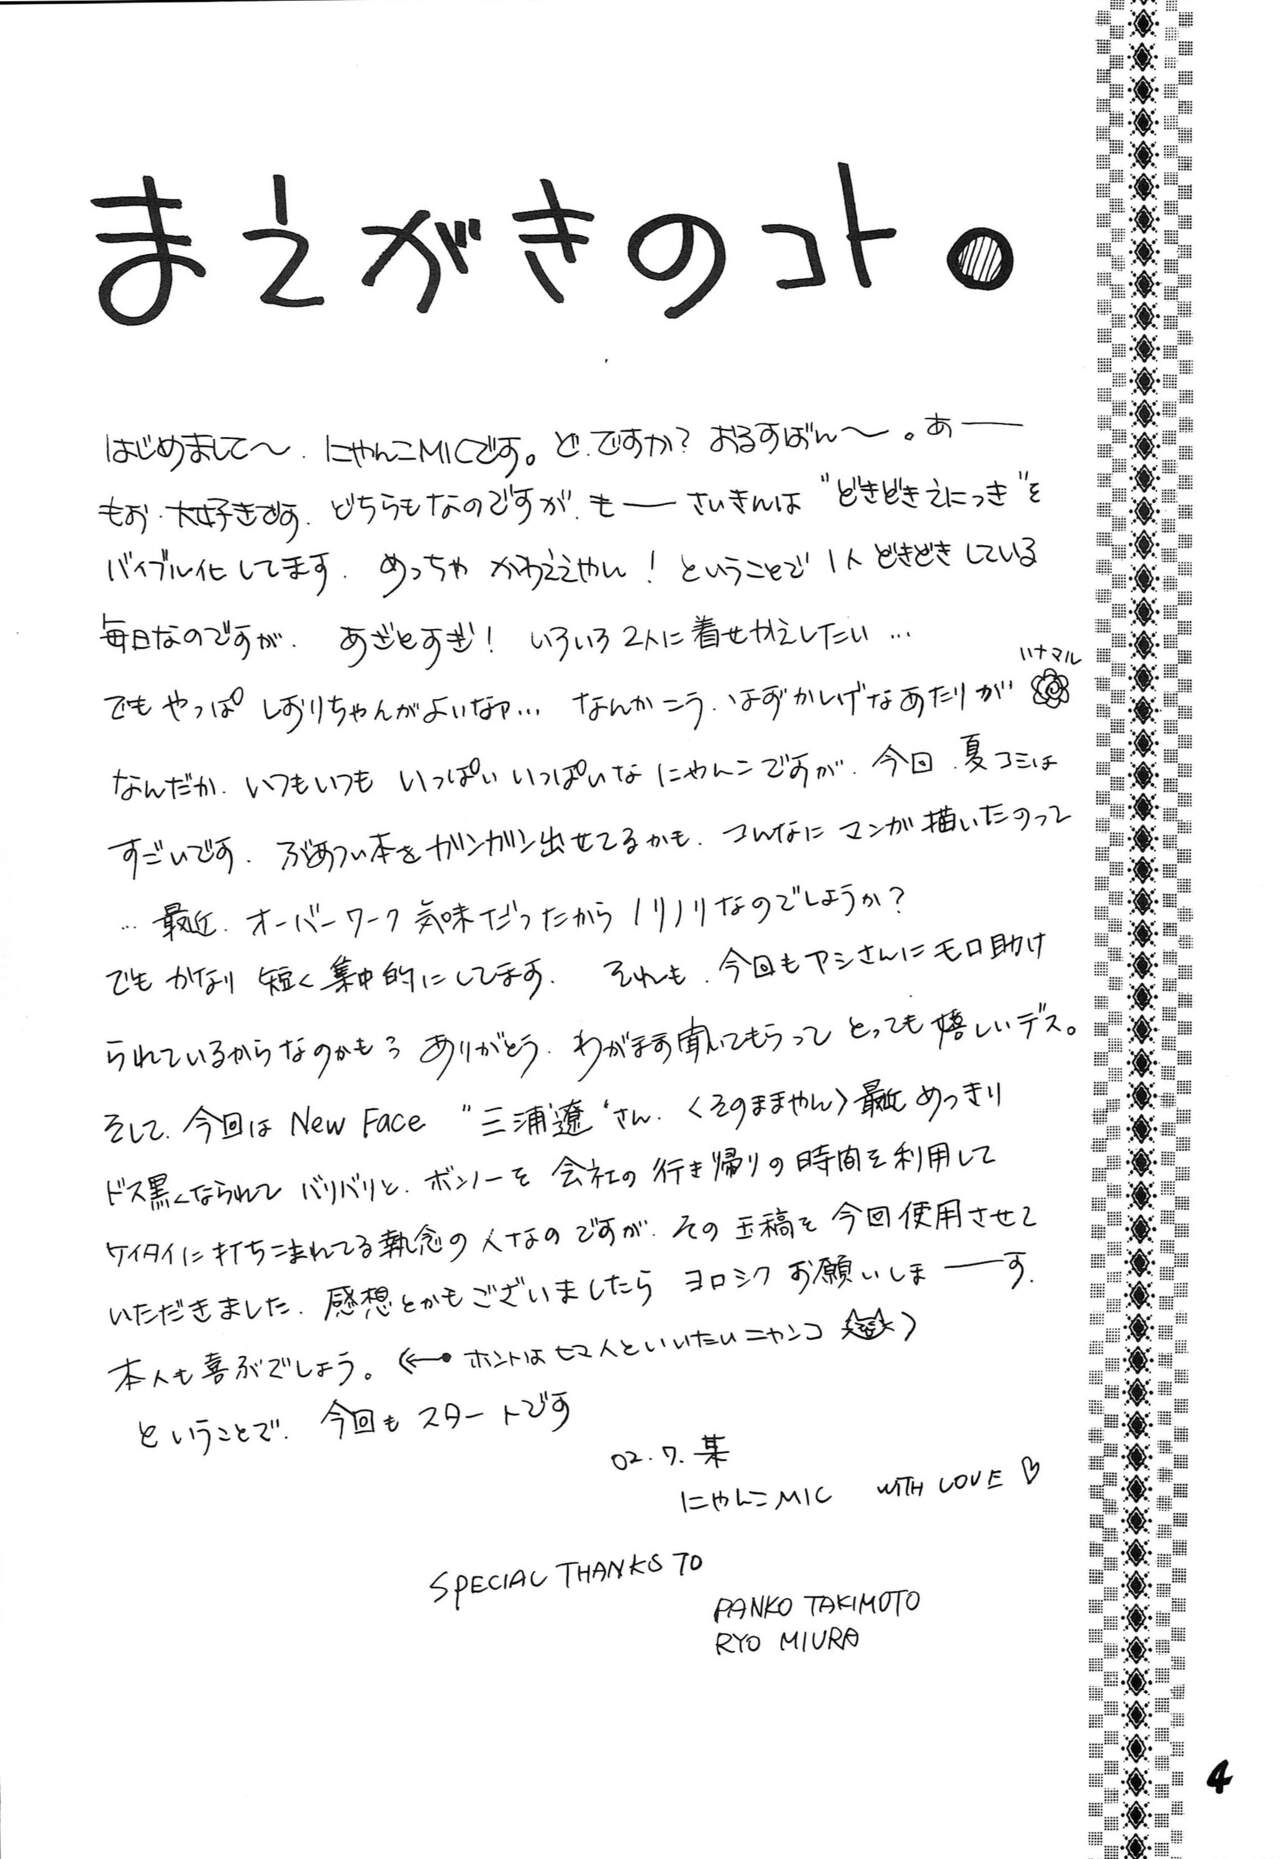 まえがきのコト。
はじめまして〜. にゃんこMICです。ど.ですか? おるすばん〜。あ——
もお.大好きです. どちらもなのですが. も—— さいきんは "どきどきえにっき"を
バイブル化してます. めっちゃ かわええやん! ということで 1人 どきどきしている
毎日なのですが. あざとすぎ! いろいろ 2人に着せかえしたい…
ハナマル
でも やっぱ しおりちゃんがよいなァ… なんかこう. はずかしげなあたりが
なんだか. いつもいつも いっぱい いっぱいな にゃんこですが. 今回. 夏コミは
すごいです. ぶあつい本を ガンガン出せてるかも. こんなに マンガ描いたのって
… 最近. オーバーワーク 気味だったから ノリノリなのでしょうか?
でも かなり 短く集中的にしてます. それも. 今回もアシさんにモロ助け
られているからなのかも ありがとう. わがまま聞いてもらって とっても 嬉しいデス。
そして. 今回は New Face "三浦遼"さん. 〈そのままやん〉最近 めっきり
ドス黒くなられて バリバリと. ボンノーを 会社の 行き帰りの時間を利用して
ケイタイに打ちこまれてる執念の人なのですが. その 玉稿を今回使用させて
いただきました. 感想とかもございましたら ヨロシク お願いしま——す.
本人も喜ぶでしょう。(← ホントはヒマ人といいたいニャンコ )
ということで. 今回も スタートです
02.7.某
にゃんこMIC WITH LOVE ♡
SPECIAL THANKS TO
PANKO TAKIMOTO
RYO MIURA
4